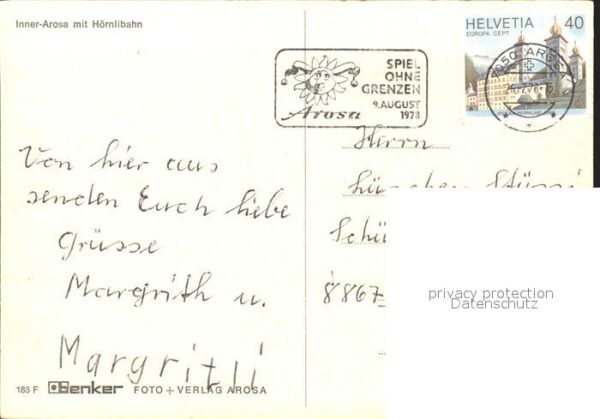 Inner-Arosa mit Hörnlibahn
HELVETIA 40
EUROPA CEPT
SPIEL
OHNE
GRENZEN
9. AUGUST
1978
Arosa
7050 AROSA
Von hier aus
senden Euch liebe
Grüsse
Margrith u.
Margritli
Herrn
Schü
8867
privacy protection
Datenschutz
186 F Genker FOTO + VERLAG AROSA